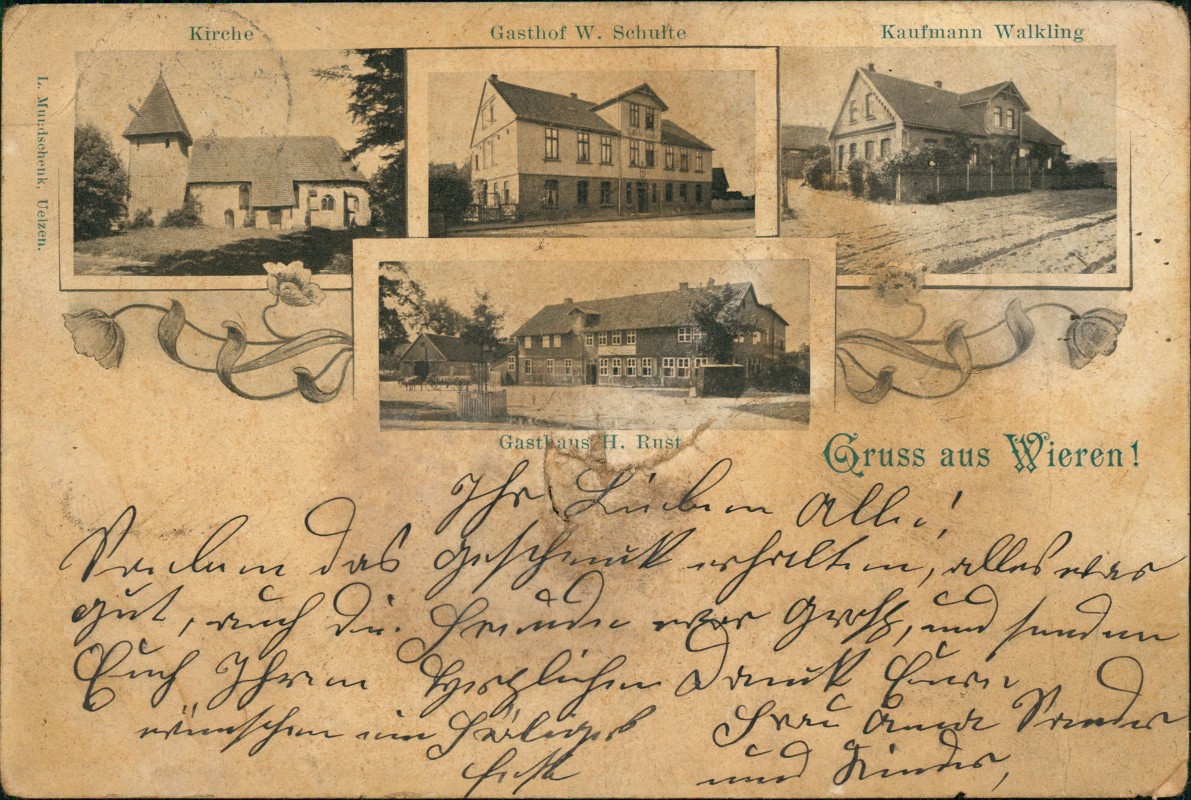 Kirche
Gasthof W. Schulte
Kaufmann Walkling
L. Mundschenk, Uelzen.
Gasthaus H. Rust
Gruss aus Wieren!
Ihr Lieben Alle!
das Geschenk erhalten, alles war
gut, auch die Freude war Groß, und senden
Euch Ihren Herzlichen Dank Eure
wünschen ein Frau Sander
und Kinder,